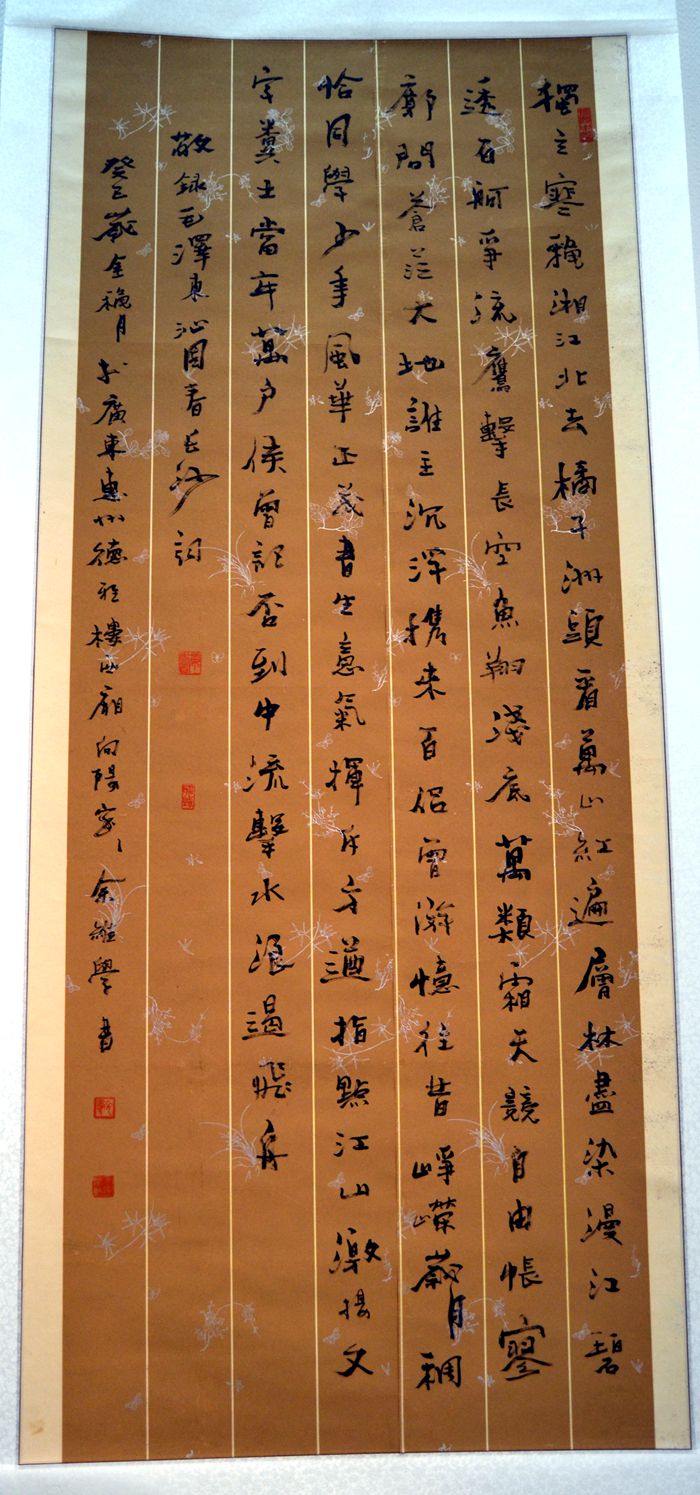 獨立寒穐湘江北去橘子洲頭看萬山紅遍層林盡染漫江碧
透百舸爭流鷹擊長空魚翔淺底萬類霜天競自由帳寥
廓問蒼茫大地誰主沉浮携来百侶曾游憶往昔崢嶸歲月稠
恰同學少年風華正茂書生意氣揮斥方遒指點江山激揚文
字糞土當年萬户侯曾記否到中流擊水浪遏飛舟
敬録毛澤東沁園春長沙詞
癸巳歲金穐月於廣東惠州德雅樓西廂向陽家余維學書